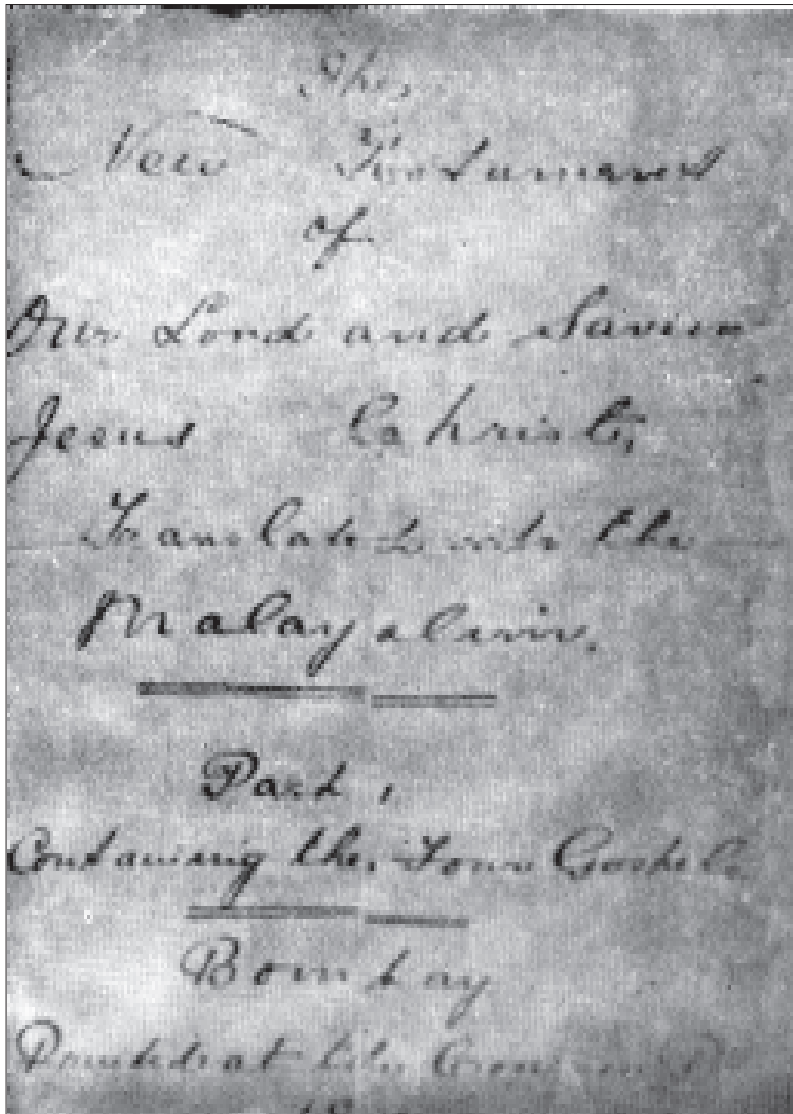 The
New Testament
of
Our Lord and Saviour
Jesus Christ,
Translated into the
Malayalim.
Part 1
Containing the Four Gospels
Bombay
Printed at the